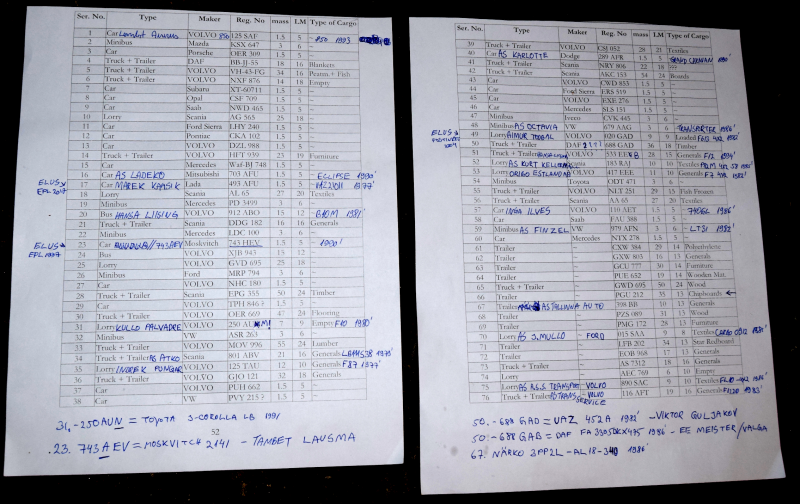 Ser. No. Type Maker Reg. No mass LM Type of Cargo
1 Car VOLVO 850 125 SAF 1.5 5 - 850 1993
2 Minibus Mazda KSX 647 3 6 ~
3 Car Porsche OER 309 1.5 5 ~
4 Truck + Trailer DAF BB-JJ-55 18 16 Blankets
5 Truck + Trailer VOLVO VH-43-FG 34 16 Peatm + Fish
6 Truck + Trailer VOLVO NXF 876 14 18 Empty
7 Car Subaru XT-60711 1.5 5 ~
8 Car Opel CSF 709 1.5 5 ~
9 Car Saab NWD 465 1.5 5 ~
10 Lorry Scania AG 565 25 18 ~
11 Car Ford Sierra JHY 240 1.5 5 ~
12 Car Pontiac CKA 102 1.5 5 ~
13 Car VOLVO DZL 988 1.5 5 ~
14 Truck + Trailer VOLVO HFT 939 23 19 Furniture
15 Car Mercedes Waf-BJ 748 1.5 5 ~
16 Car AS LADEKO Mitsubishi 703 AFU 1.5 5 - ECLIPSE 1990'
ELUS EPL 2017
17 Car MAREK KAASIK Lada 493 AFU 1.5 5 1977'
18 Lorry Scania AL 65 27 20 Textiles
19 Minibus Mercedes PD 3499 3 6 ~
20 Bus HANSA LIISING VOLVO 912 ABO 15 12 - B10M 1981'
21 Truck + Trailer Scania DDG 182 16 16 Generals
22 Minibus Mercedes LDC 100 3 6 ~
ELUS EPL 1997
23 Car 743AEV Moskvitch 743 HEV 1.5 5 - 1990'
24 Bus VOLVO XJB 943 15 12 ~
25 Lorry VOLVO GVD 695 25 18 ~
26 Minibus Ford MRP 794 3 6 ~
27 Car VOLVO NHC 180 1.5 5 ~
28 Truck + Trailer Scania EPG 355 50 24 Timber
29 Car VOLVO TPH 846 ? 1.5 5 ~
30 Truck + Trailer VOLVO OER 669 47 24 Flooring
31 Lorry KULLO PALVADRE VOLVO 250 AUM 7 9 Empty F10 1980'
32 Minibus VW ASR 263 3 6 ~
33 Truck + Trailer VOLVO MOV 996 55 24 Lumber
34 Truck + Trailer AS ATKO Scania 801 ABV 21 16 Generals 1978'
35 Lorry INDREK PUNGAR VOLVO 125 TAU 12 10 Generals F87 1977'
36 Truck + Trailer VOLVO GJO 121 32 18 Generals
37 Car VOLVO PUH 662 1.5 5 ~
38 Car VW PVY 215 ? 1.5 5 ~
52
31. -250AUN = TOYOTA 3-COROLLA LB 1991
.23. 743AEV = MOSKVITCH 2141 - TANBET LAUSMA
39 Truck + Trailer VOLVO CSJ 052 28 21 Textiles
40 Car AS KARLOTTE Dodge 289 AFR 1.5 5 GRAND CARAVAN 1990'
41 Truck + Trailer Scania NRY 806 22 18 ???
42 Truck + Trailer Scania AKC 153 54 24 Boards
43 Car VOLVO CWD 853 1.5 5 ~
44 Car Ford Sierra ERS 519 1.5 5 ~
45 Car VOLVO EXE 276 1.5 5 ~
46 Car Mercedes SLS 151 1.5 5 ~
47 Minibus Iveco CVK 445 3 6 ~
48 Minibus AS OCTAVIA VW 679 AAG 3 6 TRANSPORTER 1986'
ELUS
49 Lorry AIMUR TOOAL VOLVO 020 GAD 9 9 Loaded 1982'
50 Truck + Trailer DAF 2??! 688 GAD 36 18 Timber
51 Truck + Trailer VOLVO 533 EEB 28 15 Generals F12 1984'
52 Lorry AS KURT Scania 183 RAJ 15 10 Generals
53 Lorry ORIGO ESTLAND VOLVO 417 EEE 11 10 Generals F7 1982'
54 Minibus Toyota ODT 471 3 6 ~
55 Truck + Trailer VOLVO NLT 251 29 15 Fish Frozen
56 Truck + Trailer Scania AA 65 27 20 Textiles
57 Car INGA ILVES VOLVO 110 AET 1.5 5 740GL 1986'
58 Car Saab FAU 388 1.5 5 ~
59 Minibus AS FINZEL VW 979 AFN 3 6 - LT31 1982'
60 Car Mercedes NTX 278 1.5 5 ~
61 Trailer CXW 384 29 14 Polyethylene
62 Trailer GXW 803 16 13 Generals
63 Trailer GCU 777 10 14 Furniture
64 Trailer PUE 652 19 14 Wooden Mat.
65 Truck + Trailer GWD 695 50 24 Wood
66 Trailer PGU 212 35 13 Chipboards ←
67 Trailer AS TALLINNA AUTO 398 BB 10 13 Generals
68 Trailer PZS 089 31 13 Wood
69 Trailer PMG 172 28 13 Furniture
70 Lorry AS S.MULLO - FORD 015 SAA 9 8 Textiles CARGO 0812 1981'
71 Trailer LFB 202 34 13 Star Redboard
72 Trailer EOB 968 17 13 Generals
73 Trailer AS 7312 18 16 Generals
74 Lorry AEC 769 6 10 Empty
75 Lorry AS A.S.S. TRANSPORT - VOLVO 890 SAC 9 10 Textiles
76 Truck + Trailer TRANS SERVICE - VOLVO 116 AFT 19 16 Generals 1983'
50. - 688 GAD = UAZ 452A 1982' - VIKTOR GULJAKOV
50. - 688 GAB = DAF FA 3305DKX475 1986' - EE MEISTER/VALGA
67. NÄRKO 3PP2L - AL18-340 1986'